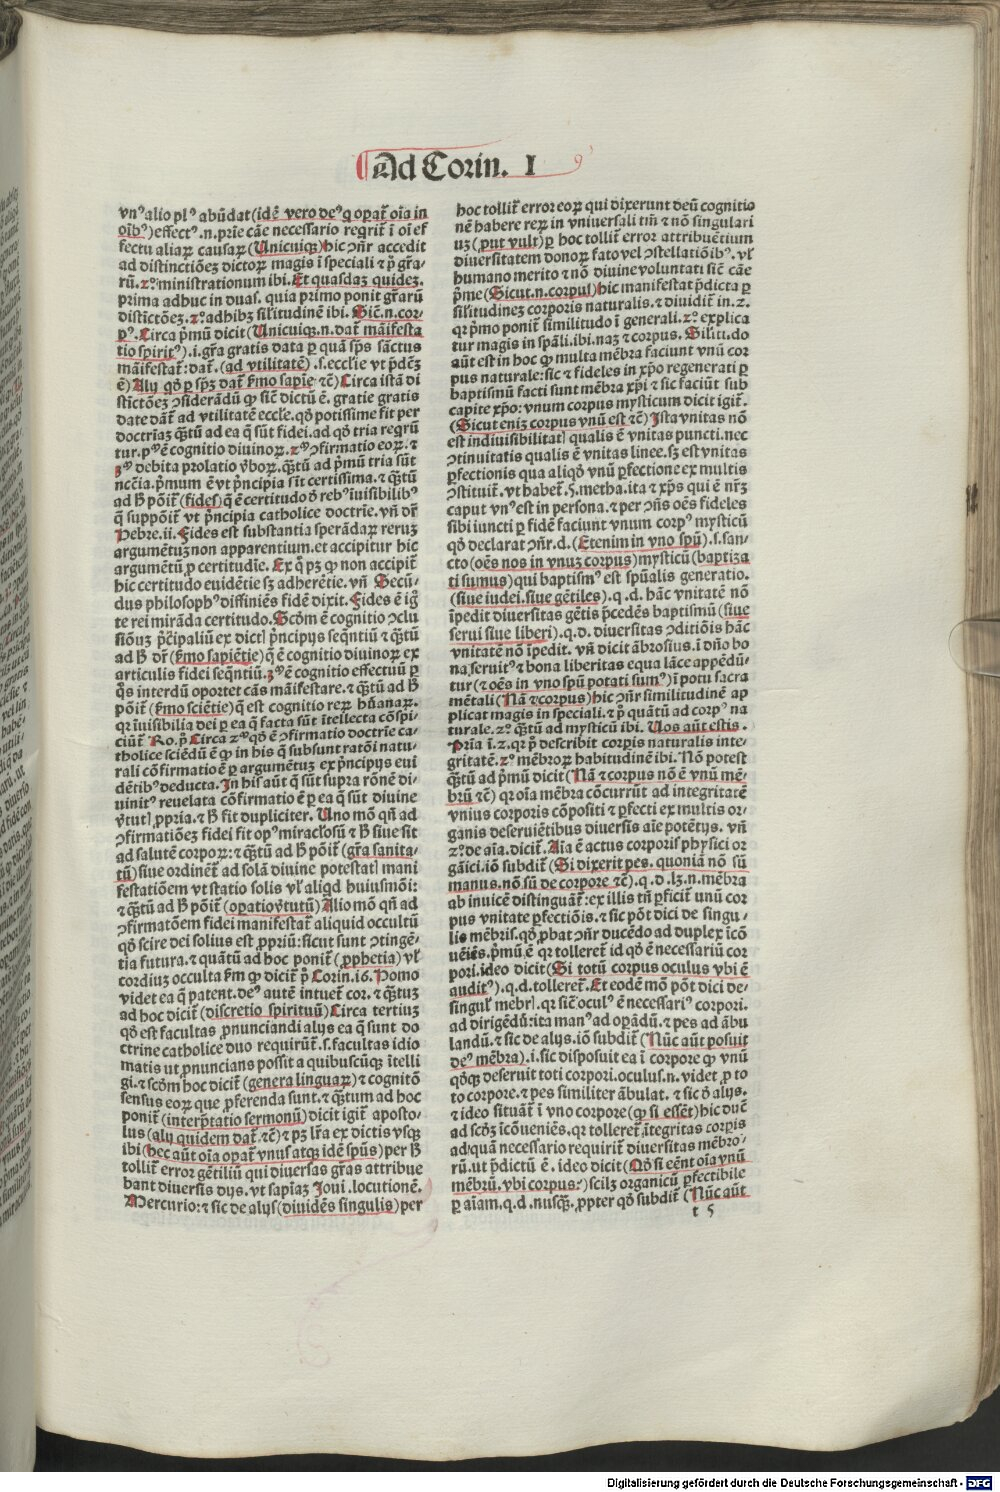 Ad Corin. I
vnꝰ alio plꝰ abūdat (idē vero deꝰ q̇ oꝑat̄ oīa in
oībꝰ) effectꝰ .n. prīe cāe necessario reqrit̄ ī oī ef
fectu aliaꝝ causaꝝ (Unicuiqꝫ) hic ꝯn̄r accedit
ad distinctiōeꝫ dictoꝝ magis ī speciali ⁊ p̄ gr̄a-
rū. ⁊ꝰ: ministrationum ibi. Et quasdaꝫ quideꝫ.
prima adhuc in duas. quia primo ponit gr̄arū
distīctōeꝫ. ⁊ꝰ adhibꝫ silitudinē ibi. Sic̄ .n. cor-
pꝰ. Circa pͥmū dicit (Unicuiqꝫ .n. dat̄ māifesta
tio spiritꝰ) .i. gr̄a gratis data ꝑ quā sp̄s sāctus
māifestat̄: dat̄. (ad vtilitatē) .s. eccl̄ie vt p̄dc̄ꝫ
ē) Alij qͦd ꝑ sp̄ꝫ dat̄ ẜmo sapīe ⁊c̄) Circa istā di
stīctōeꝫ ꝯsiderādū ꝙ sic̄ dictū ē. gratie gratis
date dāt̄ ad vtilitatē eccl̄e. qͦd potissime fit per
doctrīaꝫ q̄ꝫtū ad ea q̄ sūt fidei. ad qͦd tria reqrū
tur. pͥmꝰ ē cognitio divinoꝝ. ⁊ꝰ ꝯfirmatio eoꝝ. ⁊
3ꝰ debita prolatio v̄boꝝ. q̄ꝫtū ad pͥmū tria sūt
nc̄ēia. pͥmum ē vt pͥncipia sīt certissima. ⁊ q̄ꝫtū
ad h̄ pōit̄ (fides) q̄ ē certitudo d̄ rebꝰ īuisibilibꝰ
q̄ suppōit̄ vt pͥncipia catholice doctrīe. vn̄ dr̄
Hebre. ii. Fides est substantia sperādaꝝ reruꝫ
argumētuꝫ non apparentium. et accipitur hic
argumētū ꝓ certitudīe. Ex q̇ pꝫ ꝙ non accipit̄
hic certitudo euidētie sꝫ adherētie. vn̄ Secū-
dus philosophꝰ diffiniēs fidē dixit. Fides ē iḡ
te rei mirāda certitudo. Scōm ē cognitio ꝯclu
siōuꝫ pͥcipaliū ex dict] pͥncipijs seqn̄tiū ⁊ q̄ꝫtū
ad h̄ dr̄ (ẜmo sapiētie) q̄ ē cognitio diuinoꝝ ex
articulis fidei seqn̄tiū. 3ꝰ ē cognitio effectuū ꝑ
q̇s interdū oportet cās māifestare. ⁊ q̄ꝫtū ad h̄
pōit̄ (ẜmo sciētie) q̄ est cognitio reꝝ hūanaꝝ.
qꝛ īuisibilia dei ꝑ ea q̄ facta sūt ītellecta cōspi-
ciūt̄ Ro. pͥ. Circa ⁊ꝰ qͦd ē ꝯfirmatio doctrīe ca-
tholice sciēdū ē ꝙ in his q̄ subsunt ratōi natu-
rali cōfirmatio ē ꝑ argumētuꝫ ex pͥncipijs eui
dētibꝰ deducta. In his aūt q̄ sūt supra rōnē di-
uinitꝰ reuelata cōfirmatio ē ꝑ ea q̄ sūt diuine
v̄tut] ꝓpria. ⁊ h̄ fit dupliciter. Uno mō qn̄ ad
ꝯfirmatiōeꝫ fidei fit opꝰ miracl̄osū ⁊ h̄ siue sit
ad salutē corpoꝝ: ⁊ q̄ꝫtū ad h̄ pōit̄ (gr̄a sanita-
tū) siue ordinet̄ ad solā diuine potestat] mani
festatiōem vt statio solis vl̓ aliqd huiusmōi:
⁊ q̄ꝫtū ad h̄ pōit̄ (oꝑatio v̓tutū) Alio mō qn̄ ad
ꝯfirmatōem fidei manifestat̄ aliquid occultū
qͦd scire dei solius est ꝓpriū: sicut sunt ꝯtingē-
tia futura. ⁊ quātū ad hoc ponit̄ (ꝓphetia) vl̓
cordiuꝫ occulta ẜm ꝙ dicit̄ pͥ Corin. 16. Homo
videt ea q̄ patent. deꝰ autē intuet̄ cor. ⁊ q̄ꝫtuꝫ
ad hoc dicit̄ (discretio spirituū) Circa tertiuꝫ
qͦd est facultas ꝓnunciandi alijs ea q̄ sunt do
ctrine catholice duo requirūt̄ .s. facultas idio
matis ut ꝓnuncians possit a quibuscūqꝫ ītelli
gi. ⁊ scōm hoc dicit̄ (genera linguaꝝ) ⁊ cognitō
sensus eoꝝ que ꝓferenda sunt. ⁊ q̄ꝫtum ad hoc
ponit̄ (interp̄tatio sermonū) dicit igit̄ aposto-
lus (alij quidem dat̄ ⁊c̄) ⁊ pꝫ lr̄a ex dictis vsqꝫ
ibi (hec aūt oīa oꝑat̄ vnus atqꝫ idē sp̄us) per h̄
tollit̄ error gētiliū qui diuersas gr̄as attribue
bant diuersis dijs. vt sapīaꝫ Joui. locutionē.
Mercurio: ⁊ sic de alijs (diuidēs singulis) per
hoc tollit̄ error eoꝝ qui dixerunt deū cognitio
nē habere reꝝ in vniuersali tm̄ ⁊ nō singulari
uꝫ (ꝓut vult) ꝑ hoc tollit̄ error attribuētium
diuersitatem donoꝝ fato vel ꝯstellatiōibꝰ. vl̓
humano merito ⁊ nō diuine voluntati sic̄ cāe
pͥme (Sicut .n. corpuꝭ) hic manifestat p̄dicta ꝑ
silitudineꝫ corporis naturalis. ⁊ diuidit̄ in .2.
qꝛ pͥmo ponit̄ similitudo ī generali. ⁊ꝰ explica
tur magis in sp̄ali. ibi. naꝫ ⁊ corpus. Siliti. do
aūt est in hoc ꝙ multa mēbra faciunt vnū cor
pus naturale: sic ⁊ fideles in xp̄o regenerati ꝑ
baptismū facti sunt mēbra xp̄i ⁊ sic faciūt sub
capite xp̄o: vnum corpus mysticum dicit igit̄.
(Sicut eniꝫ corpus vnū est ⁊c̄) Ista vnitas nō
est indiuisibilitat] qualis ē vnitas puncti. nec
ꝯtinuitatis qualis ē vnitas linee. sꝫ est vnitas
ꝑfectionis qua aliqͦd vnū ꝑfectione ex multis
ꝯstituit̄. vt habet̄ .5. metha. ita ⁊ xp̄s qui ē nr̄ꝫ
caput vnꝰ est in persona. ⁊ per ꝯn̄s oēs fideles
sibi iuncti ꝑ fidē faciunt vnum corpꝰ mysticū
qͦd declarat ꝯn̄r. d. (Etenim in vno sp̄ū) .s. san-
cto (oēs nos in vnuꝫ corpus) mysticū (baptiza
ti sumus) qui baptismꝰ est sp̄ualis generatio.
(siue iudei. siue gētiles) .q.d. hāc vnitatē nō
īpedit diuersitas gētis p̄cedēs baptismū (siue
serui siue liberi) .q.d. diuersitas ꝯditiōis hāc
vnitatē nō īpedit. vn̄ dicit ābrosius. ī dn̄o bo
na ẜuitꝰ ⁊ bona libertas equa lāce appēdū-
tur (⁊ oēs in vno sp̄ū potati sumꝰ) ī potu sacra
mētali (Nā ⁊ corpus) hic ꝯn̄r similitudinē ap
plicat magis in speciali. ⁊ pͥ quātū ad corpꝰ na
turale. ⁊ꝰ q̄ꝫtū ad mysticū ibi. Uos aūt estis.
Prīa ī .2. qꝛ pͥ describit corꝑis naturalis inte-
gritatē. ⁊ꝰ mēbroꝝ habitudinē ibi. Nō potest
q̄ꝫtū ad pͥmū dicit (Nā ⁊ corpus nō ē vnū mē-
brū ⁊c̄) qꝛ oīa mēbra cōcurrūt ad integritatē
vnius corporis cōpositi ⁊ ꝑfecti ex multis or-
ganis deseruiētibus diuersis aīe potētijs. vn̄
⁊ꝰ de aīa. dicit̄. Aīa ē actus corporis physici or
gāici. iō subdit (Si dixerit pes. quoniā nō sū
manus. nō sū de corpore ⁊c̄) .q.d. lꝫ .n. mēbra
ab inuicē distinguāt̄: ex illis tn̄ ꝑficit̄ unū cor
pus vnitate ꝑfectiōis. ⁊ sic pōt dici de singu-
lis mēbris. qͦd ꝓbat ꝯn̄r ducēdo ad duplex īcō
uēiēs. pͥmū ē qꝛ tolleret̄ id qͦd ē necessariū cor
pori. ideo dicit (Si totū corpus oculus vbi ē
auditꝰ) .q.d. tolleret̄. Et eodē mō pōt dici de-
singul̓ mēbr]. qꝛ sic̄ oculꝰ ē necessariꝰ corpori.
ad dirigēdū: ita manꝰ ad oꝑādū. ⁊ pes ad ābu
landū. ⁊ sic de alijs. iō subdit̄ (Nūc aūt posuit
deꝰ mēbra) .i. sic disposuit ea ī corpore ꝙ vnū
qͦdqꝫ deseruit toti corpori. oculus .n. videt ꝓ to
to corpore. ⁊ pes similiter ābulat. ⁊ sic d̄ alijs.
⁊ ideo situāt̄ ī vno corpore (ꝙ si essēt) hic ducē
ad scōꝫ īcōueniēs. qꝛ tolleret̄ ītegritas corꝑis
ad quā necessario requirit̄ diuersitas mēbro-
rū. ut p̄dictū ē. ideo dicit (Qͦd si eēnt oīa vnū
mēbrū. vbi corpus?) scilꝫ organicū ꝑfectibile
ꝑ aīam. q.d. nusqꝫ. ꝓpter qͦd subdit̄ (Nūc aūt
t 5
Digitalisierung gefördert durch die Deutsche Forschungsgemeinschaft - DFG